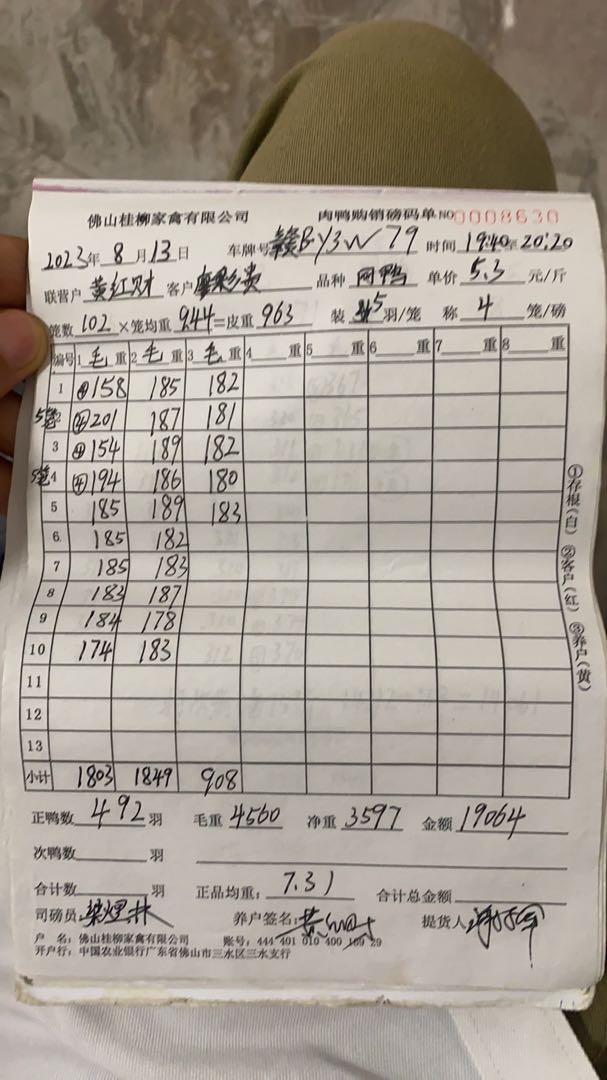 佛山桂柳家禽有限公司 肉鸭购销磅码单 NO 0008630
2023年 8 月 13 日 车牌号 赣B Y3W79 时间 19:40至20:20
联营户 黄红财 客户 品种 单价 5.3 元/斤
笼数 102 ×笼均重 944 =皮重 963 装 5 羽/笼 称 4 笼/磅
编号 1 毛 重 2 毛 重 3 毛 重 4 重 5 重 6 重 7 重 8 重
1 ④158 185 182
5笼 2 ④201 187 181
3 ④154 189 182
5笼 4 ④194 186 180
5 185 189 183
6 185 182
7 185 183
8 183 187
9 184 178
10 174 183
11
12
13
小计 1803 1849 908
正鸭数 492 羽 毛重 4560 净重 3597 金额 19064
次鸭数 羽
合计数 羽 正品均重: 7.31 合计总金额
司磅员: 养户签名: 提货人:
户 名: 佛山桂柳家禽有限公司 账号: 444 401 010 400 169 29
开户行: 中国农业银行广东省佛山市三水区三水支行
①存根(白) ②客户(红) ③养户(黄)